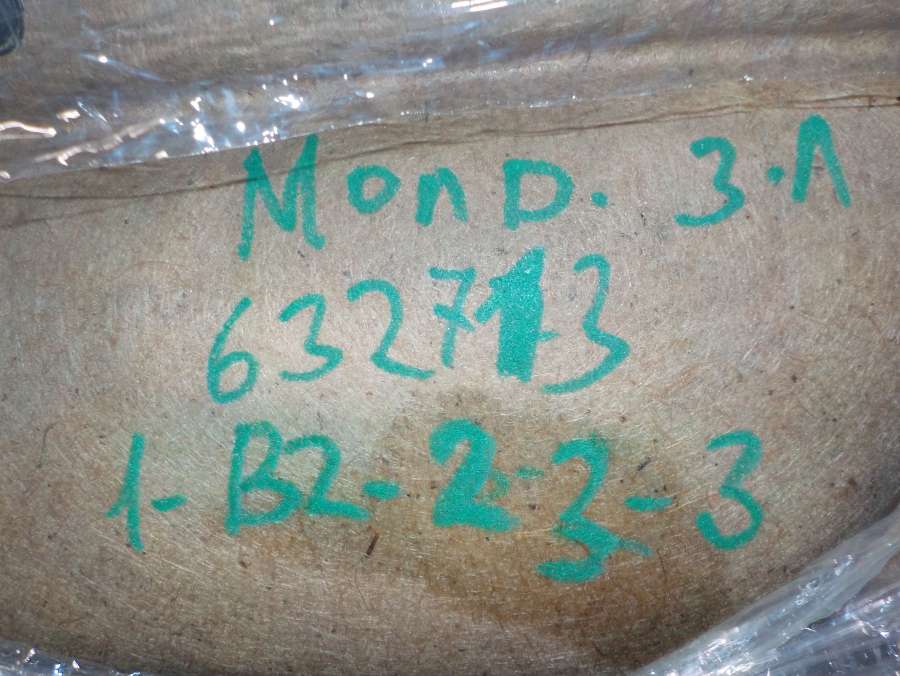 MonD. 3.A
632713
1-B2-2-3-3